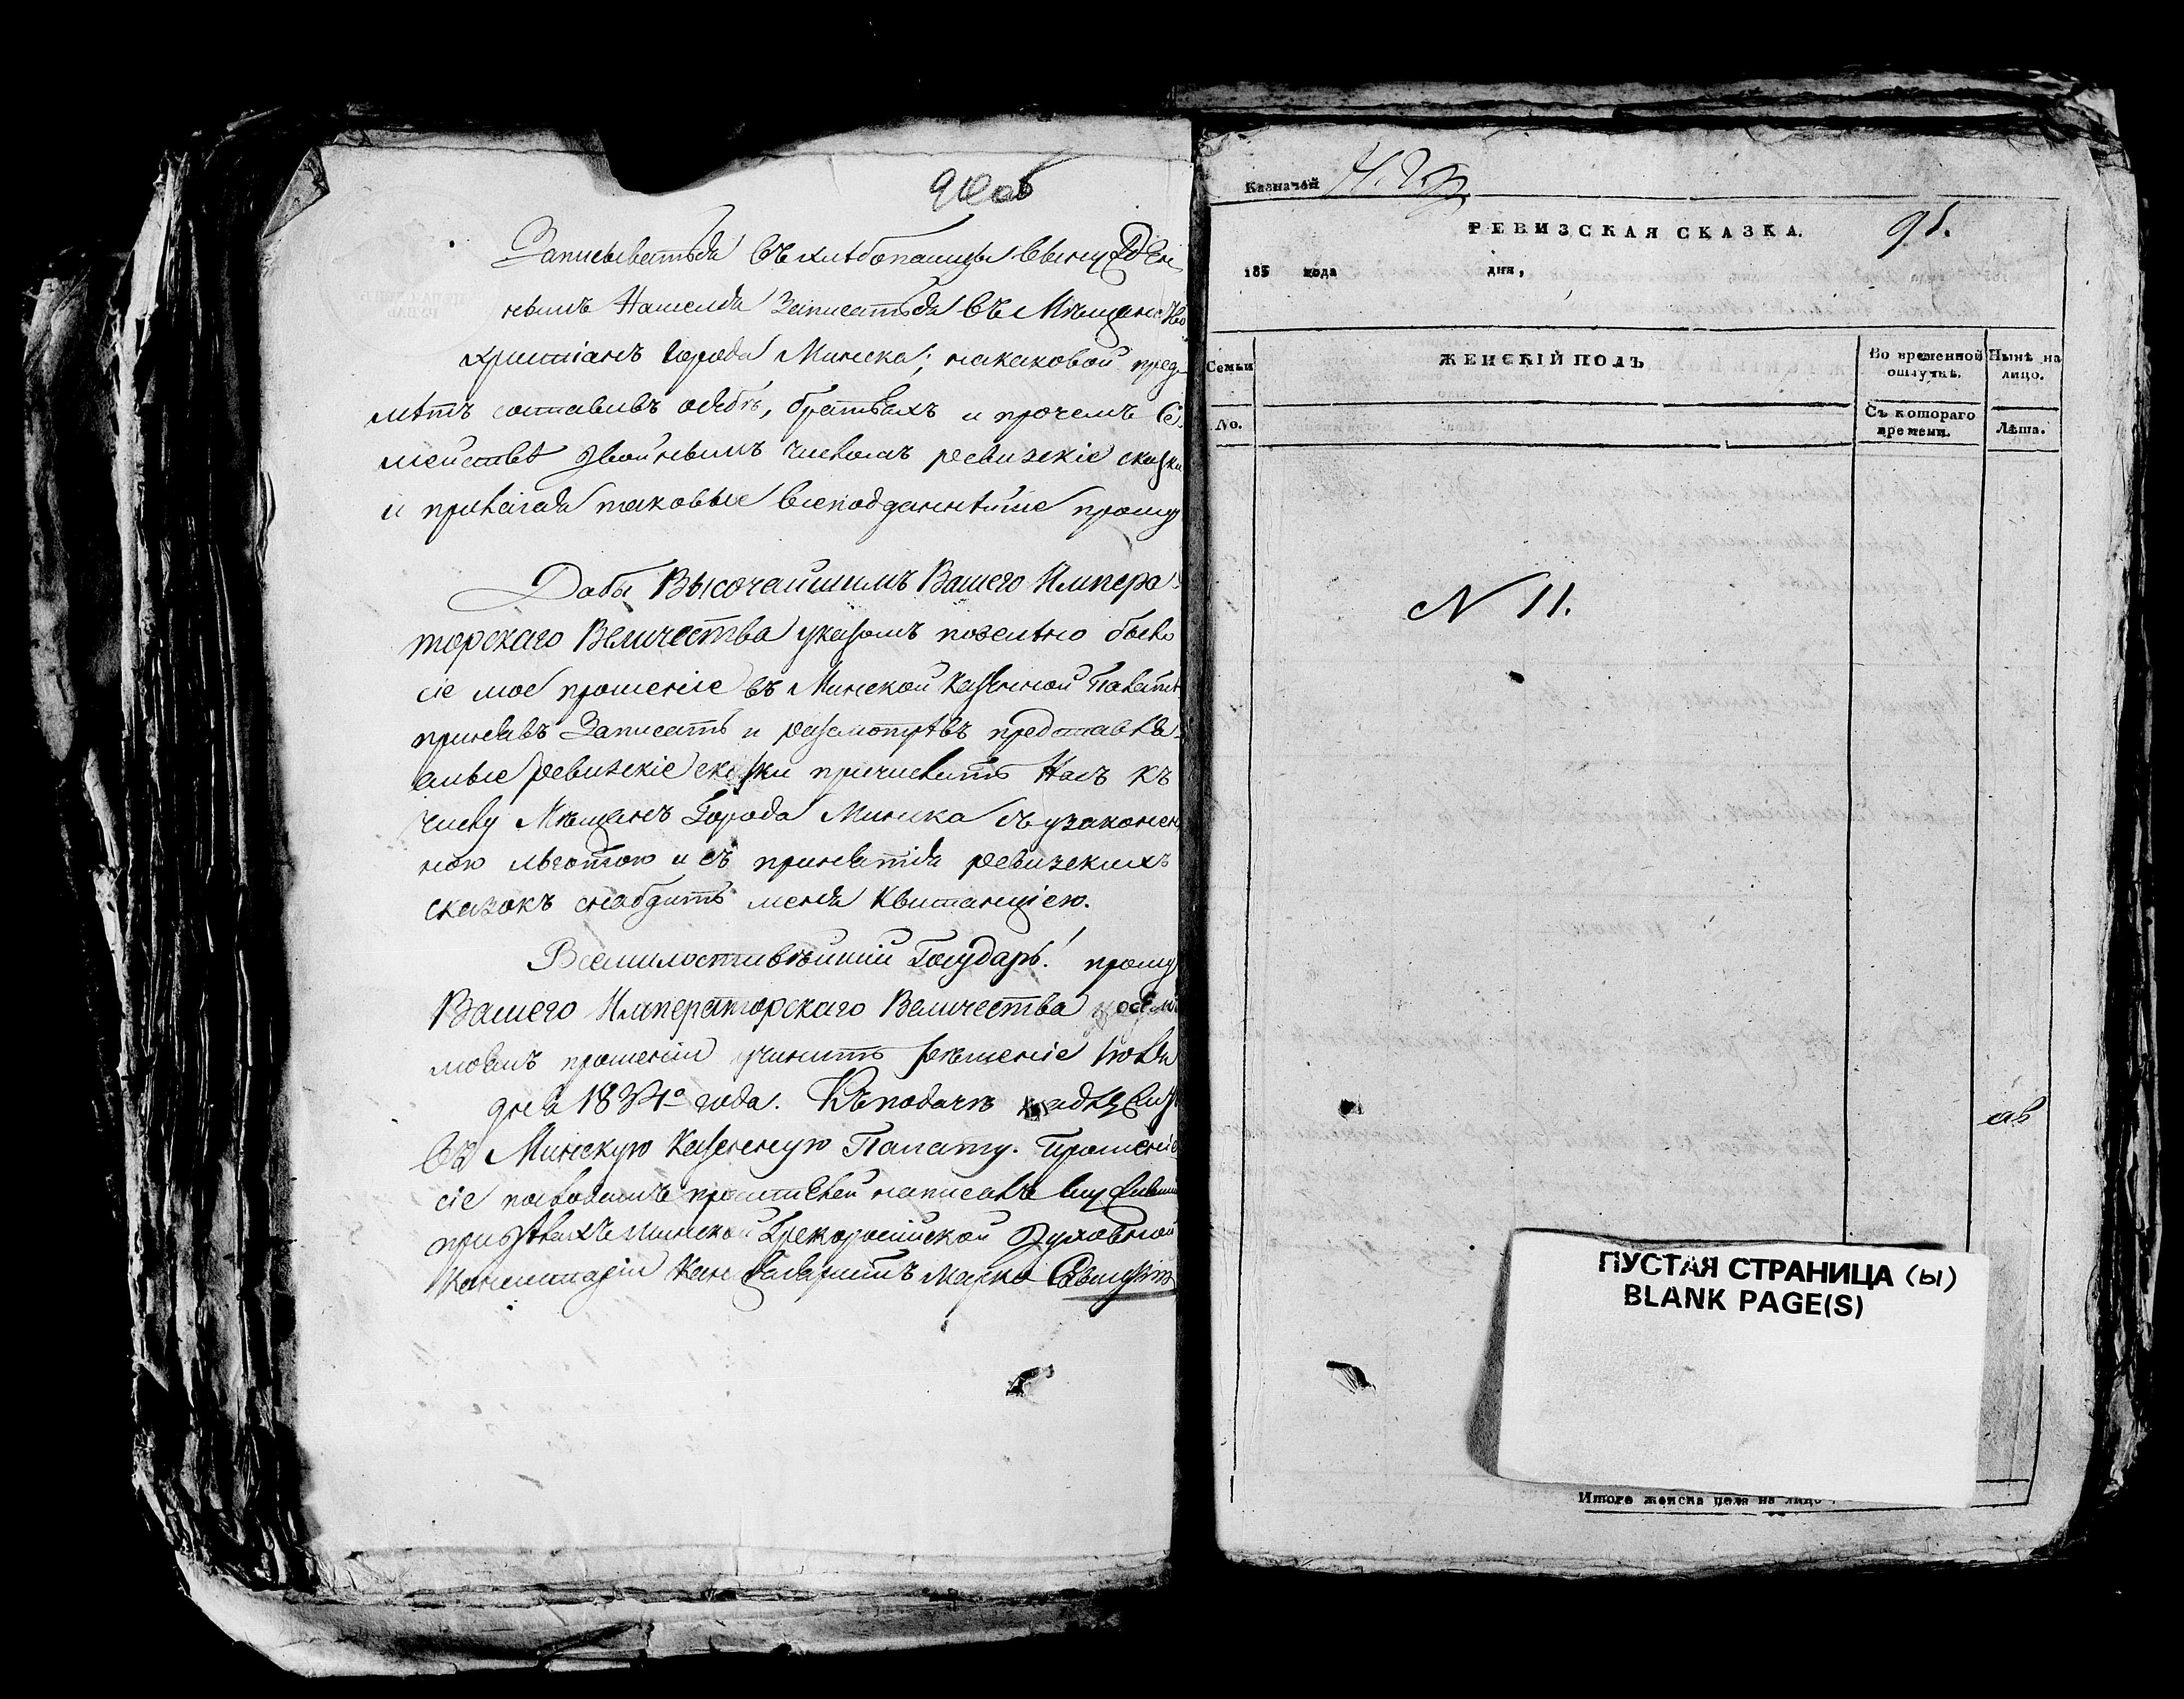 90об
Записыватьса въ хлѣбопашцы вынужден
нымъ Нашелса Записатьса въ Мѣщане Изъ
христіанъ Города Минска; накаковой пред
мѣтъ составивъ осебѣ, братьяхъ и прочемъ Се
мействѣ двойнымъ числомъ ревизскіе сказки
и прилагая таковые всеподданнѣйше прошу
Дабы Высочайшимъ Вашего Импера
торскаго Величества указомъ повелѣно было
сіе мое прошеніе въ Минской Казенной Палатѣ
принявъ Записать и разсмотрѣвъ представля
емые ревизскіе сказки причислить Насъ къ
числу Мѣщанъ Города Минска съ узаконен
ною льготою и съ принятія ревизскихъ
сказокъ снабдить меня Квитанціею.
Всемилостивѣйшій Государь! прошу
Вашего Императорскаго Величества о семъ
моемъ прошеніи учинить рѣшеніе Іюля
дня 1834го года. Къ подачѣ надлежитъ
въ Минскую Казенную Палату. Прошеніе
сіе сословамъ просителей написалъ
при дѣлахъ Минской Грекоросійской Духовной
Консисторіи Канцеляристъ Марко
Казначей
РЕВИЗСКАЯ СКАЗКА.
91.
185 года дня,
Семьи
ЖЕНСКІЙ ПОЛЪ
Во временной отлучкѣ.
Нынѣ на лицо.
No.
Съ котораго времени.
Лѣта.
N 11.
ПУСТАЯ СТРАНИЦА (Ы)
BLANK PAGE(S)
Итого женска пола на лицо